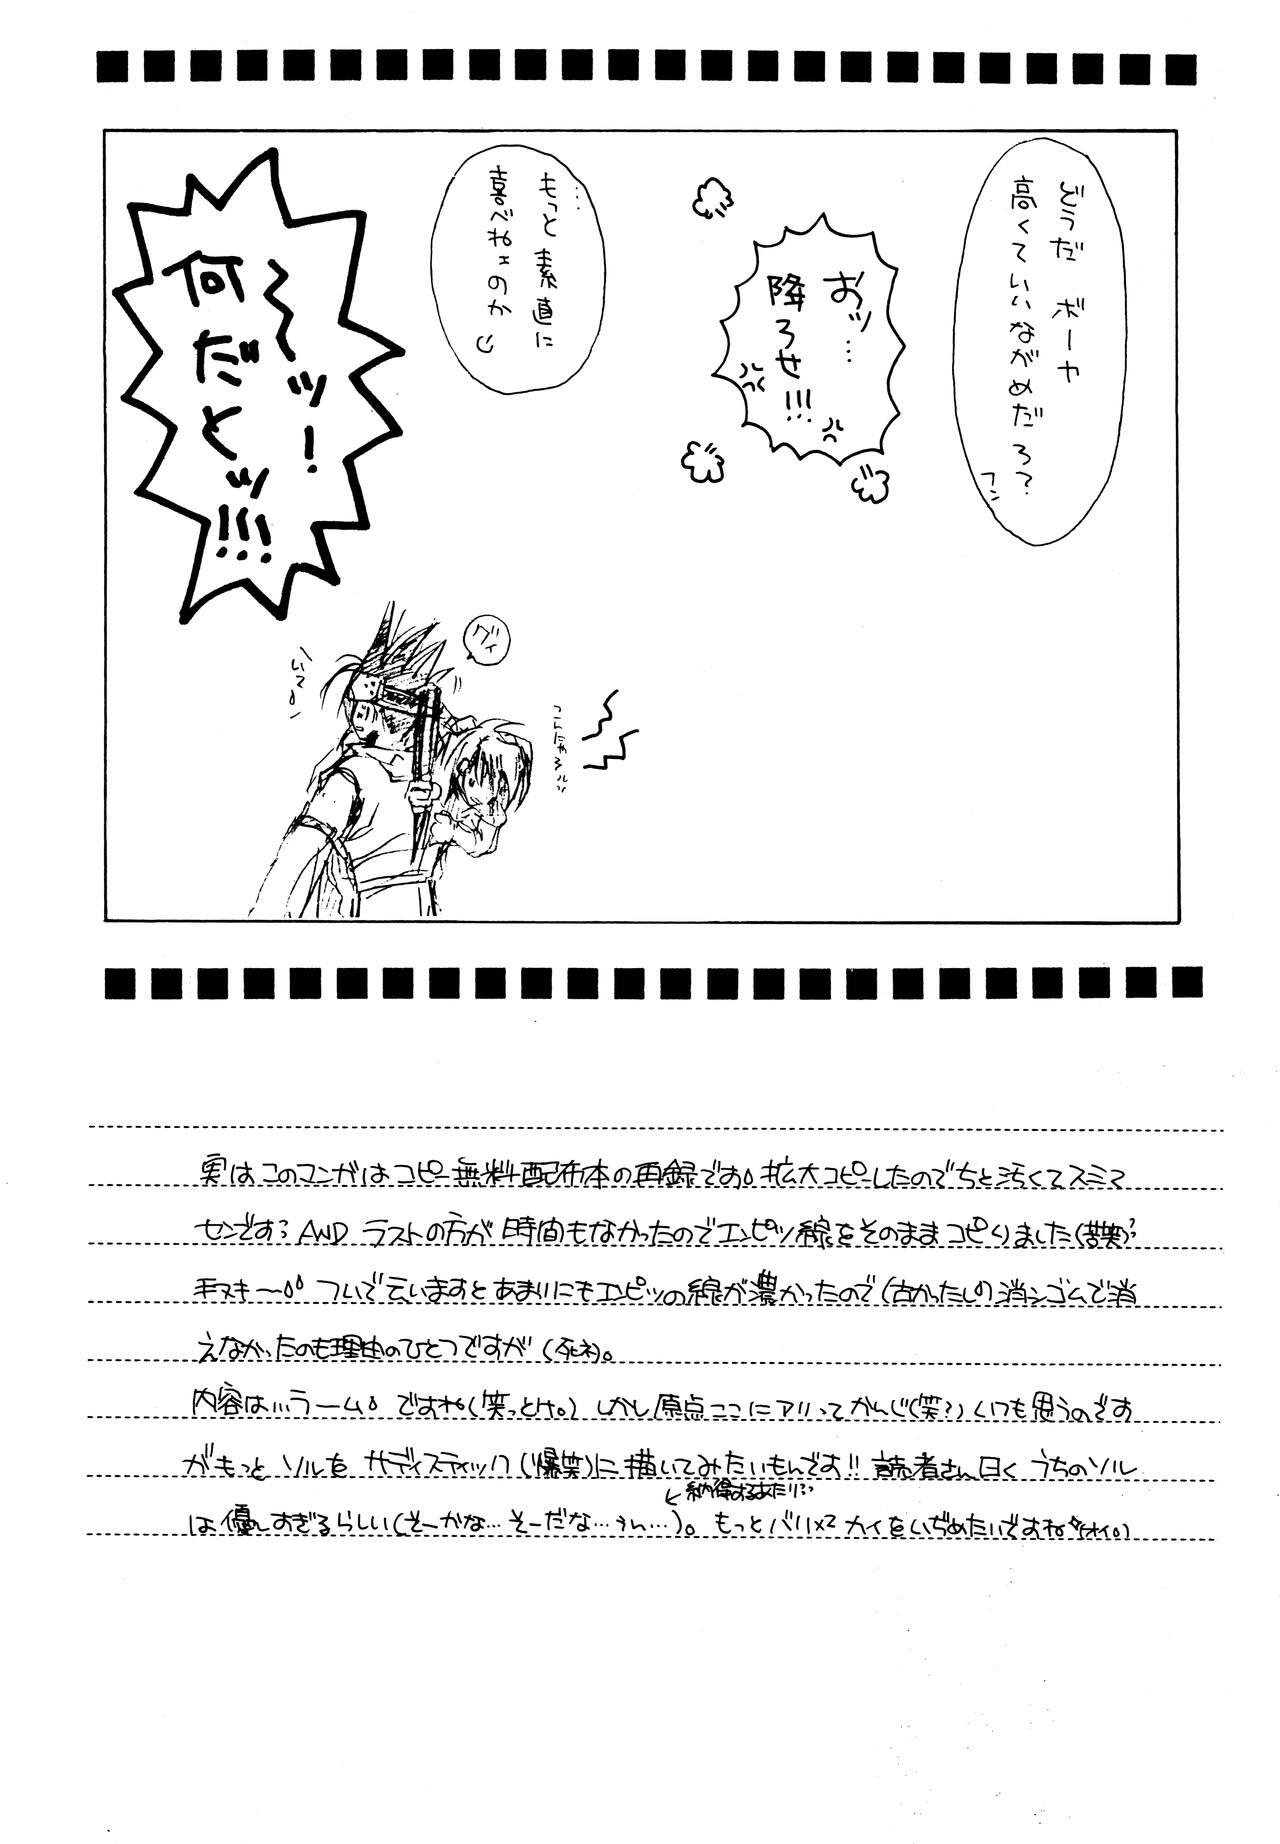 どうだ ボーヤ
高くていいながめだろ?
フン
おッ…
降ろせ!!!
…もっと素直に
喜べねェのか
〜〜ッ!
何だとッ!!!
グイ
いて
こんにゃろ
実はこのマンガはコピー無料配布本の再録です。拡大コピーしたのでちと汚くてスミマ
センです? AND ラストの方が時間もなかったのでエンピツ線をそのままコピりました(苦笑)?
手ヌキ〜 ついで云いますとあまりにもエンピツの線が濃かったので(古かったしの)消シゴムで消
えなかったのも理由のひとつですが(死ネ)。
内容は…ラーム。ですね(笑っとけ。)しかし原点ここにアリってかんじ(笑?)いつも思うのです
がもっとソルをサディスティック(爆笑)に描いてみたいもんです!! 読者さん曰くうちのソル
は優しすぎるらしい(そーかな…そーだな…うん…)。もっとバリバリカイをいぢめたいですね(オイ。)
納得するあたり…